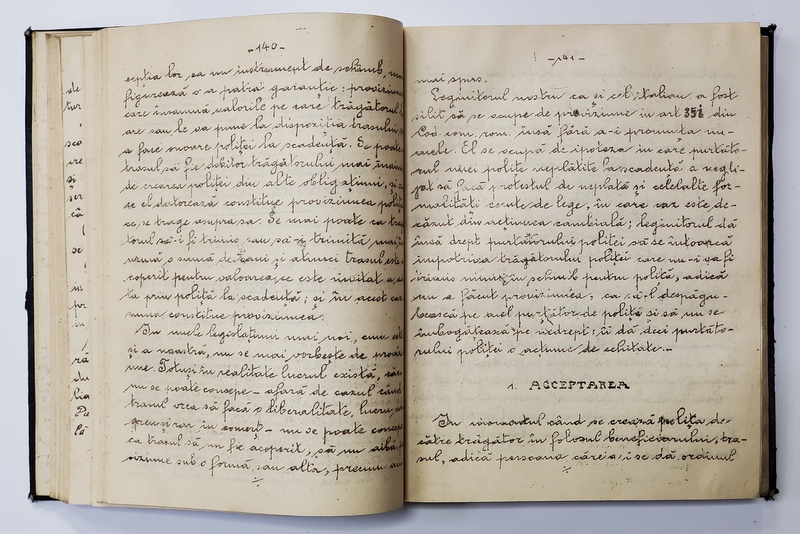 -140-
epția lor ca un instrument de schimb, mai
figurează o a patra garanție: proviziunea
care însamnă valorile pe care trăgătorul
are sau le va pune la dispoziția trasului
a face onoare poliței la scadență. Se poate
trasul să fie debitor trăgătorului mai înainte
de crearea poliței din alte obligațiuni, și
ce el datorează constitue provizinnea poliței
ce se trage asupra sa. Se mai poate ca tră
torul să-i fi trimis, sau să trimită mai
urmă o sumă de bani și atunci trasul este
coperit pentru valoarea, ce este invitat a
ta prin poliță la scadență; și în acest caz
suma constitue provizinnea.
In unele legislațiuni mai noi, cum este
și a noastră, nu se mai vorbește de provi
une. Totuși în realitate lucrul există, căci
nu se poate concepe - afară de cazul când
trasul vrea să facă o liberalitate, lucru
greu și rar in comerț - nu se poate concepe
ca trasul să nu fie acoperit, să nu aibă
vizinne sub o formă sau alta, precum am
-141-
mai spus.
Legiuitorul nostru ca și cel italian a fost
silit să se ocupe de provizinne in art 351 din
Cod. com. rom. însă fără a-i pronunța nu-
mele. El se ocupă de ipoteza in care purtăto-
rul unei polițe neplătite la scadență a negli-
jat să facă protestul de neplată și celelalte for-
malități cerute de lege, în care caz este de-
căzut din acțiunea cambială; legiuitorul dă
însă drept purtătorului poliței să se întoarcă
împotriva trăgătorului poliței care nu-i va fi
trimis nimic in schimb pentru poliță, adică
nu a făcut provizinnea, ca să-l despăgu-
bească pe acel purtător de poliță și să nu se
îmbogățească pe nedrept; îi dă deci purtăto-
rului poliței o acțiune de echitate.-
1. ACCEPTAREA
In momentul când se crează polița de-
către trăgător în folosul beneficiarului, tra-
sul, adică persoana căreia i se dă ordinul